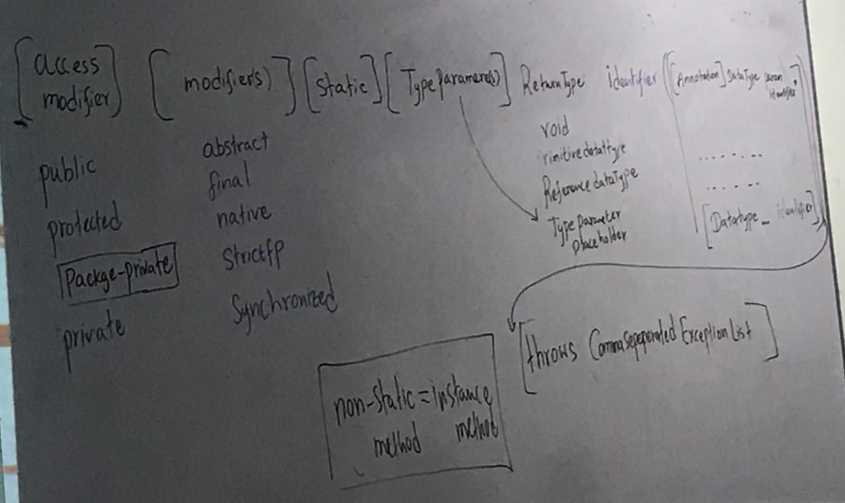 [access modifier] [modifier(s)] [static] [TypeParameter(s)] ReturnType identifier ([Annotation] DataType
public
protected
Packge-private
private
abstract
final
native
Strictfp
Synchronized
void
rimitivedatattype
ReferencedataType
Type parameter
placeholder
.......
......
[Datatype_ identifier])
[throws CommaSepeperated Exception List]
non-static = instance
method method